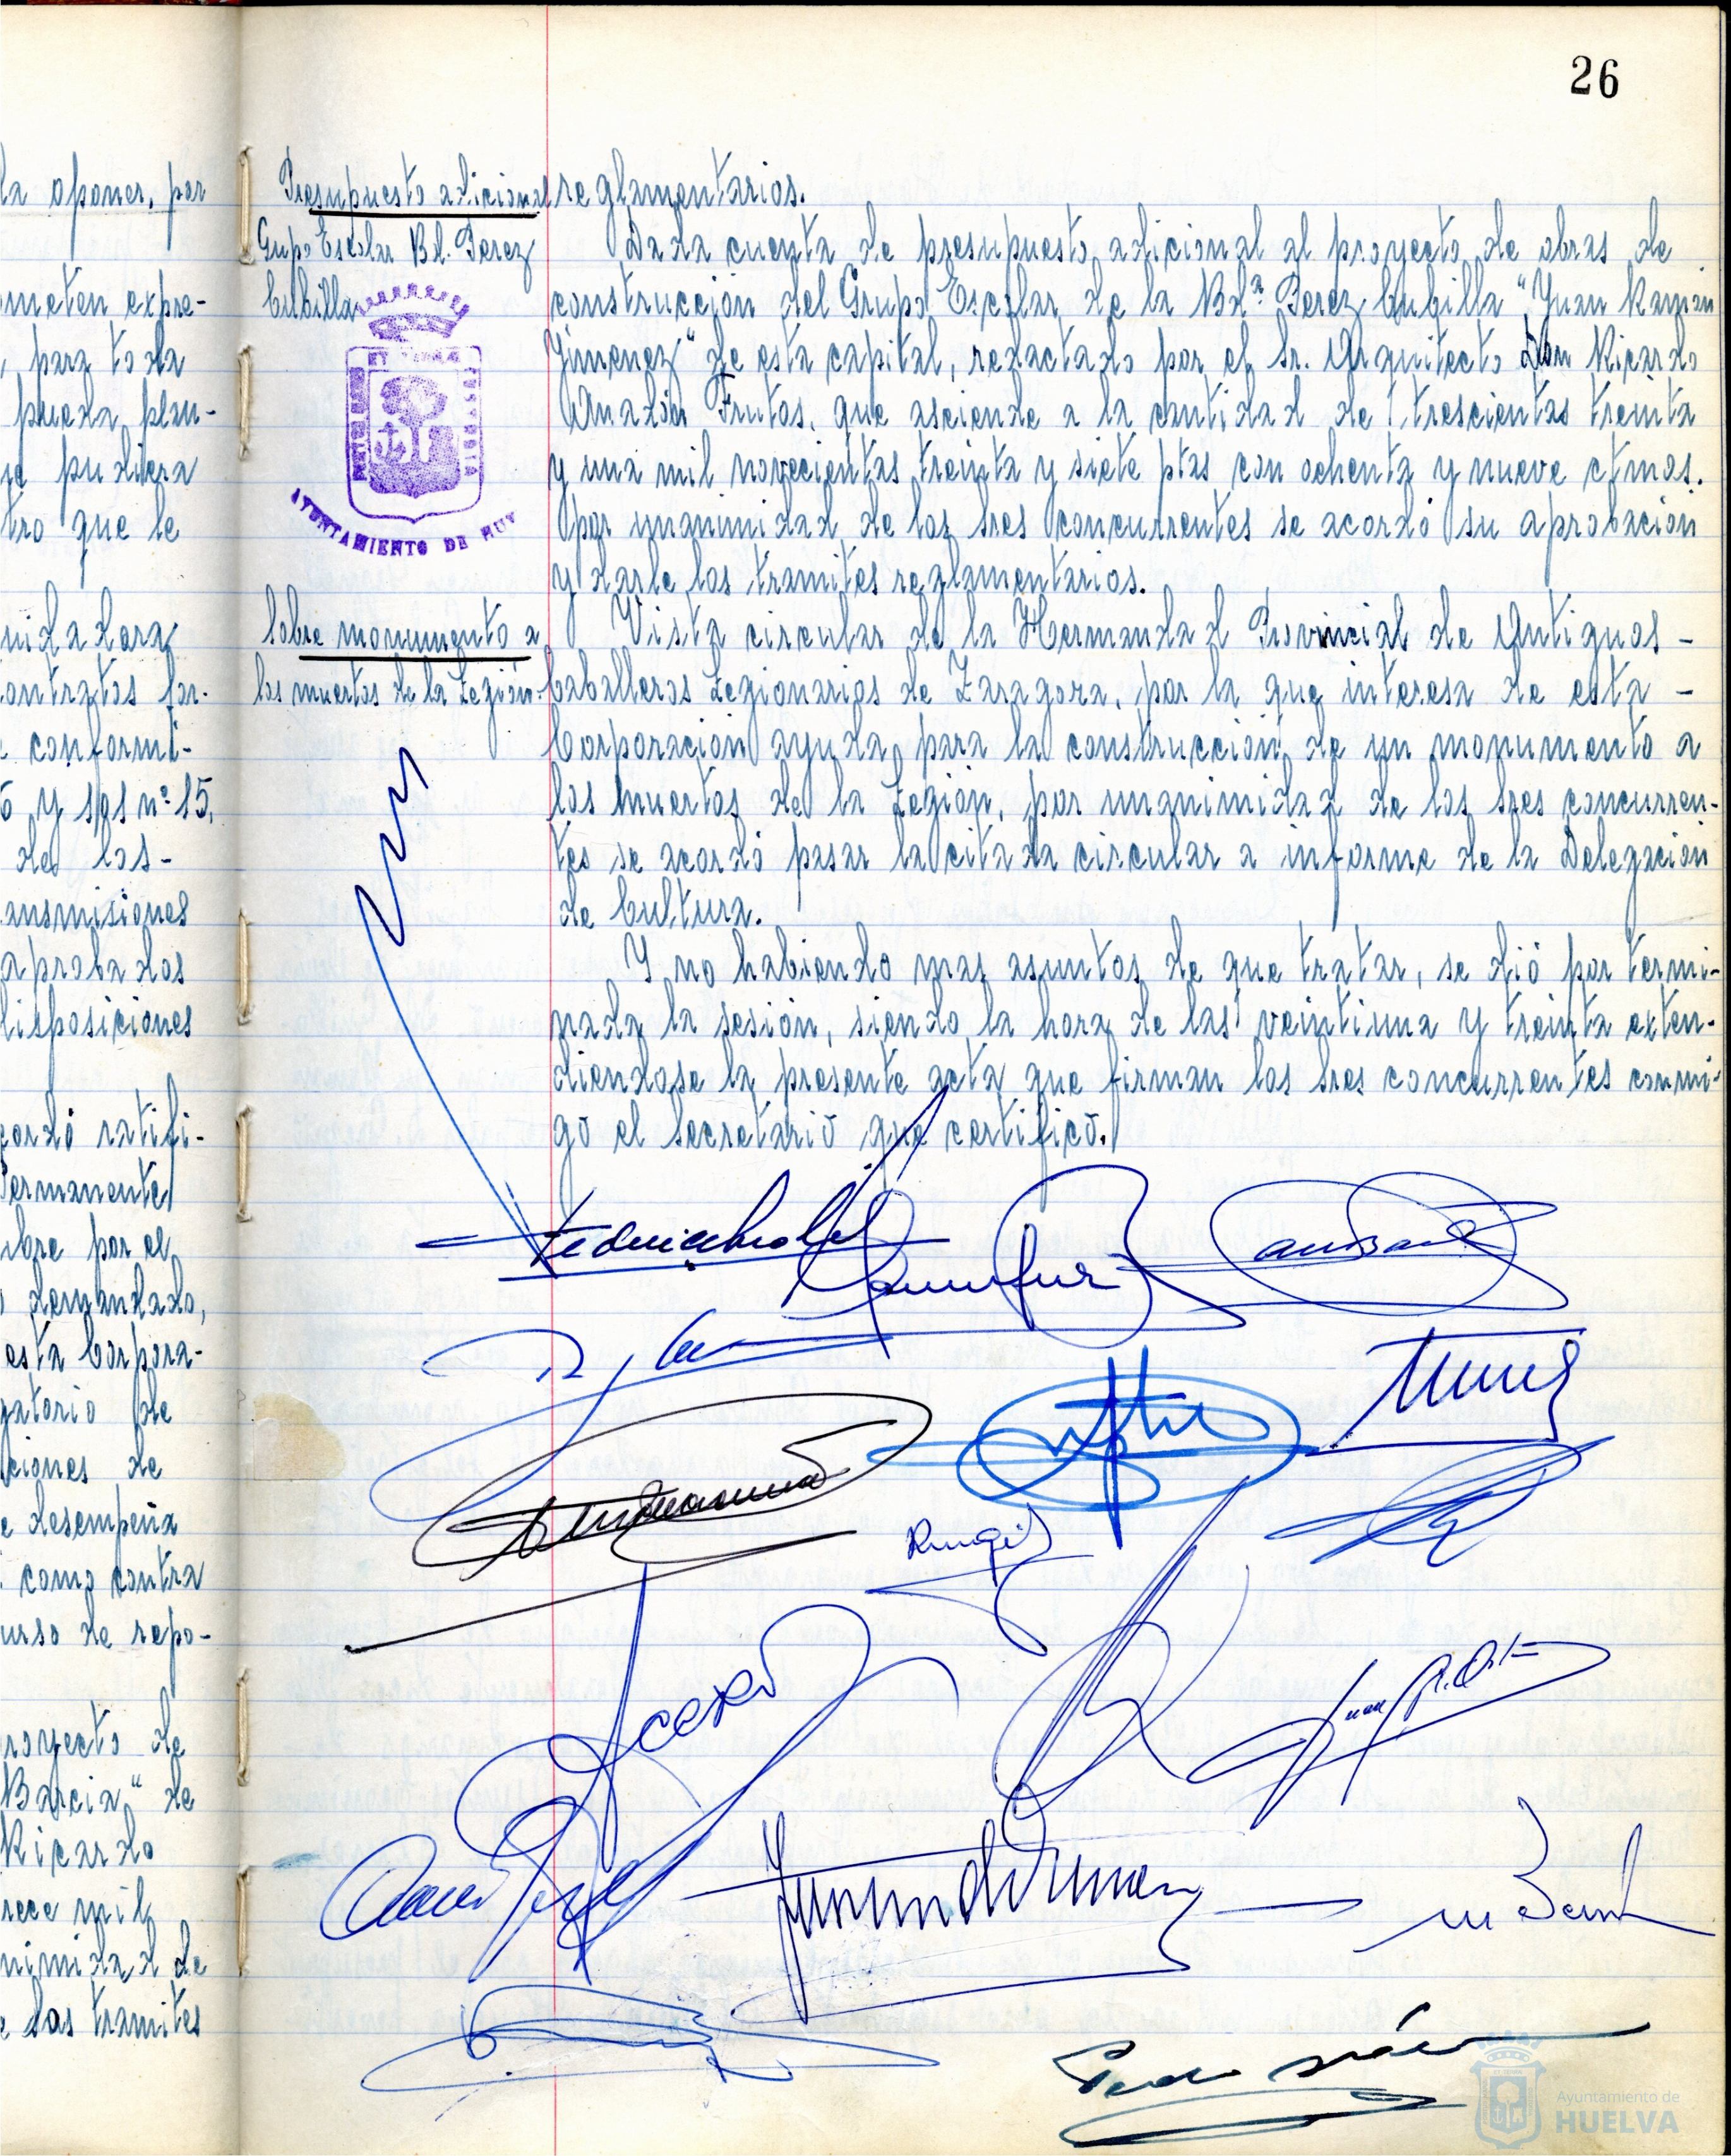 26
la oponer, por
meten expre-
, para toda
pueda plan-
pudiera
tro que le
ontratos for-
conformi-
y sgs nº 15,
de los-
ansmisiones
aprobados
disposiciones
cordó ratifi-
Permanente
ibre por el
demandado,
esta Corpora-
gatorio de
ciones de
e desempeña
como contra
urso de repo-
royecto de
Barcia" de
Ricardo
rece mil
nimidad de
e los tramites
Presupuesto adicional
Grupo Escolar Bd. Perez
Cubilla
AYUNTAMIENTO DE HUV
Sobre monumento a
los muertos de la Legión-
reglamentarios.
Dada cuenta de presupuesto adicional al proyecto de obras de
construccion del Grupo Escolar de la Bdª. Perez Cubilla "Juan Ramon
Jimenez" de esta capital, redactado por el Sr. Arquitecto Don Ricardo
Anadón Frutos, que asciende a la cantidad de trescientas treinta
y una mil novecientas treinta y siete ptas con ochenta y nueve ctmos.
por unanimidad de los sres concurrentes se acordó su aprobacion
y darle los tramites reglamentarios.
Vista circular de la Hermandad Provincial de Antiguos -
Caballeros Legionarios de Zaragoza, por la que interesa de esta -
Corporacion ayuda para la construccion de un monumento a
los Muertos de la Legion, por unanimidad de los sres concurren-
tes se acordó pasar la citada circular a informe de la Delegacion
de Cultura.
Y no habiendo mas asuntos de que tratar, se dió por termi-
nada la sesión, siendo la hora de las veintiuna y treinta exten-
diendose la presente acta que firman los sres concurrentes conmi-
go el secretario que certifico.
Ayuntamiento de
HUELVA